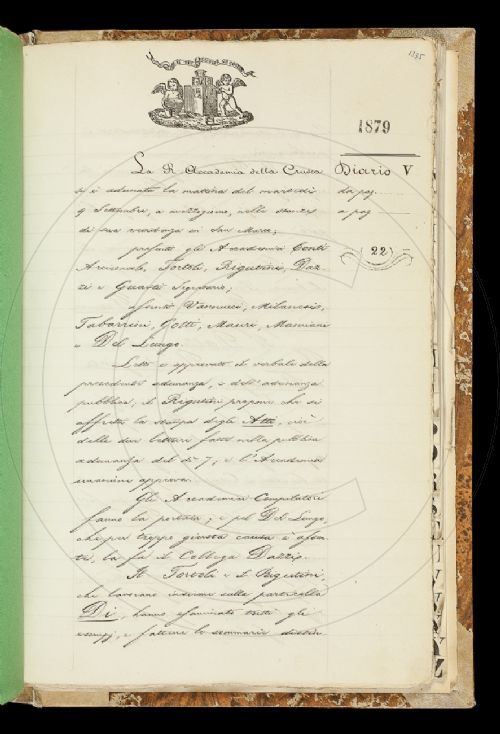 1879
La R. Accademia della Crusca
si è adunata la mattina del martedì
9 Settembre, a mezzogiorno, nelle stanze
di sua residenza in San Marco;
presenti gli Accademici Conti
Arciconsolo, Tortoli, Rigutini, Daz-
zi e Guasti Segretario;
assenti Vannucci, Milanesi,
Tabarrini, Gotti, Mamiani
e Del Lungo.
Letto e approvato il verbale della
precedente adunanza, e dell'adunanza
pubblica, il Rigutini propone che si
affretti la stampa degli Atti, cioè
delle due letture fatte nella pubblica
adunanza del dì 7; e l'Accademia
unanime approva.
Gli Accademici Compilatori
fanno la portata; e pel Del Lungo,
che per troppo giusta causa è assen-
te, la fa il Collega Dazzi.
Il Tortoli e il Rigutini,
che lavorano insieme sulla particella
Di, hanno esaminato tutti gli
esempj, e fattone lo sommario
Diario V
da pag.
a pag.
(22)